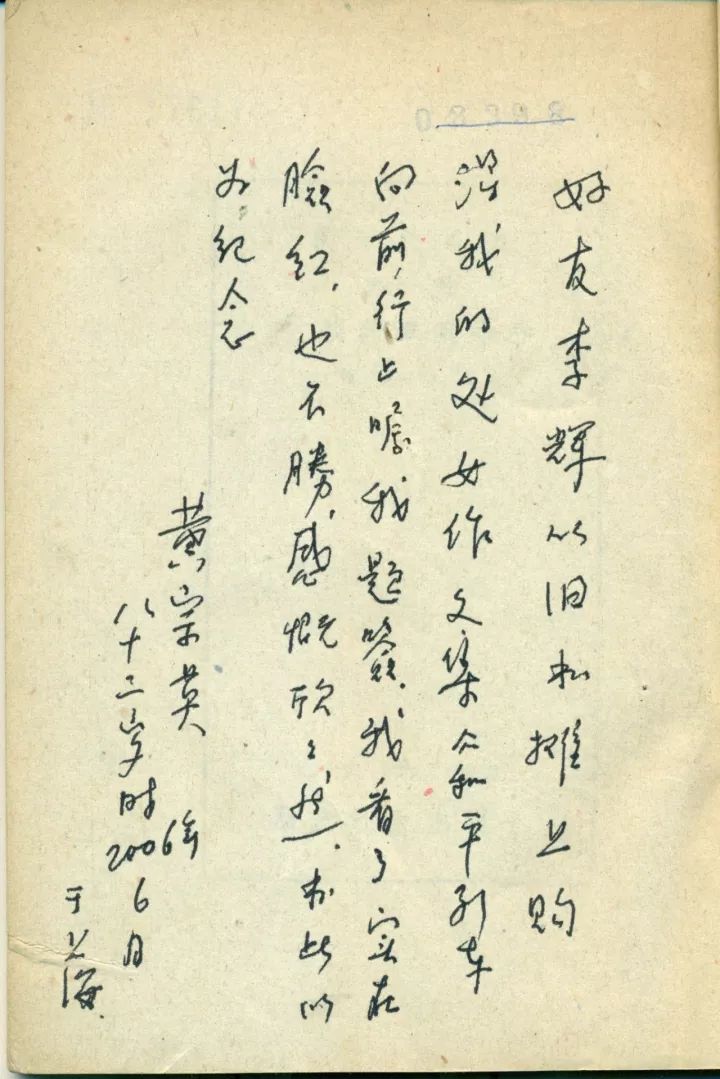 好友李辉从旧书摊上购
得我的处女作文集《和平列车
向前行》上嘱我题簽，我看了实在
臉红，也不勝感慨欣欣然，书此以
为纪念
黄宗英
八十二岁时 2006年
6月
于上海